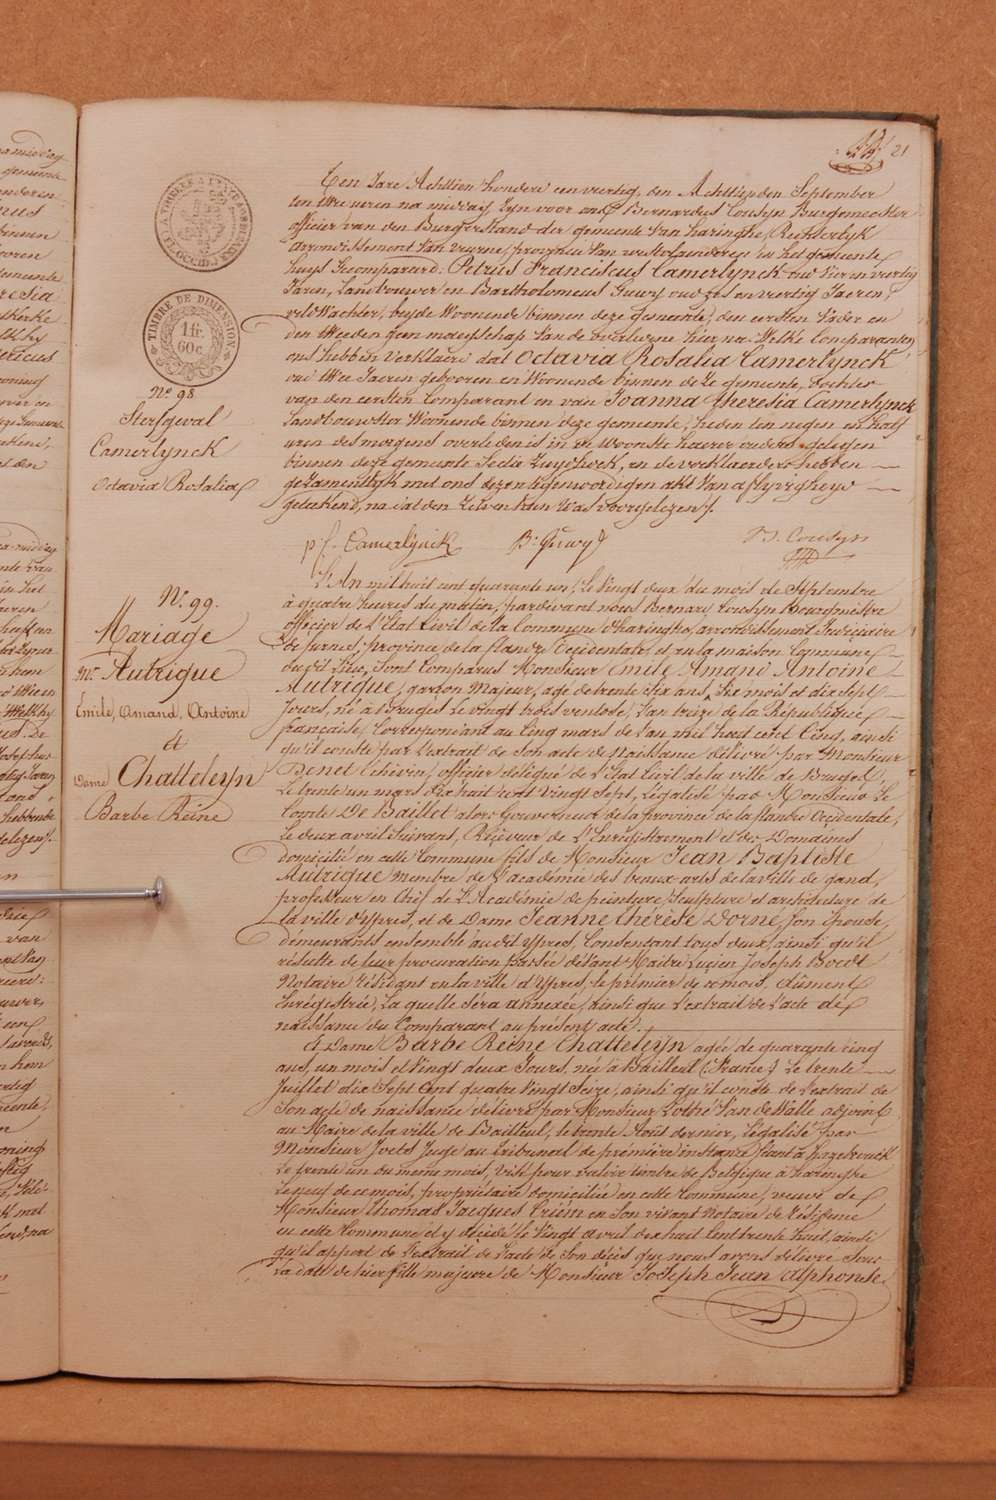 21
TIMBRE DE DIMENSION
1 fr.
60 c.
N.º 98
Sterfgeval
Camerlynck
Octavia Rosalia
Ten Jare Achttien honderd een viertig, den Achttynden September
ten twee uren na middag zyn voor ons Bernardus Cousyn Burgemeester
officier van den Burgerstand der gemeente van haringhe, Rechterlyk
arrondissement van veurne, provincie van westvlaenderen, in het gemeente
huys Gecompareerd: Petrus Franciscus Camerlynck oud vier en veertig
Jaren, Landbouwer en Bartholomeus Guwy oud zes en viertig Jaeren,
veldwachter, beyde Woonende binnen deze gemeente, den eersten Vader en
den tweeden geen maegschap van de overledene hier na. Welke Comparanten
ons hebben verklaerd dat Octavia Rosalia Camerlynck
oud twee Jaeren gebooren en Woonende binnen deze gemeente, dochter
van den eersten Comparant en van Joanna theresia Camerlynck
Landbouwster Woonende binnen deze gemeente, heden ten negen en half
uren des morgens overleden is in de Woonste haerer ouders gelegen
binnen deze gemeente Sectie Zuydhoek, en de verklaerders hebben
gezamentlyk met ons dezen tegenwoordigen akt van aflyvigheyd
geteekend, na dat den zelven hun was voorgelezen.
p f Camerlijnck B: Guwy B. Cousyn
N.º 99.
Mariage
Mr. Autrique
Emile, Amand, Antoine
et
Dame Chatteleyn
Barbe Reine
L'An mil huit cent quarante un, le vingt deux du mois de Septembre
à quatre heures du matin, pardevant nous Bernard Cousyn Bourgmestre
officier de l'Etat Civil de la Commune d'haringhe, arrondissement Judiciaire
de furnes, province de la flandre Occidentale, et en la maison Commune
du dit lieu, sont Comparus Monsieur Emile Amand Antoine
Autrique, garçon Majeur, agé de trente six ans, six mois et dix sept
Jours, né à Bruges le vingt trois ventose, l'an treize de la République
française, Correspondant au Cinq mars de l'an mil huit cent Cinq, ainsi
qu'il conste par l'extrait de son acte de naissance délivré par Monsieur
officier délégué de l'Etat Civil de la ville de Bruges,
Le trente un mars dix huit cent vingt sept, légalisé par Monsieur Le
Comte De Baillet alors Gouverneur de la province de la flandre Occidentale,
Le deux avril suivant, Receveur de l'Enregistrement et des Domaines
domicilié en cette Commune fils de Monsieur Jean Baptiste
Autrique membre de l'académie des beaux-arts de la ville de gand,
professeur en Chef de l'Académie de peinture, sculpture et architecture de
la ville d'ypres, et de Dame Jeanne thérèse Dorne, son épouse,
demeurants ensemble au dit ypres, Consentant tous deux, ainsi qu'il
résulte de leur procuration passée devant Maitre Lucien Joseph Boedt
Notaire résidant en la ville d'ypres, le premier de ce mois, dûment
Enrégistrée, la quelle sera annexée, ainsi que l'extrait de l'acte de
naissance du Comparant au présent acte.
Et Dame Barbe Reine Chatteleyn agée de quarante cinq
ans, un mois et vingt deux Jours, née à Bailleul (France) le trente
Juillet dix sept Cent quatre vingt Seize, ainsi qu'il conste de l'extrait de
son acte de naissance délivré par Monsieur Lothé Van de Walle adjoint
au Maire de la ville de Bailleul, le trente Août dernier, légalisé par
Monsieur Joets Juge au tribunal de première instance séant à hazebrouck
Le trente un du même mois, visé pour valoir timbre de Belgique à haringhe
Le neuf de ce mois, propriétaire domiciliée en cette Commune, veuve de
Monsieur thomas Jacques Criem en son vivant notaire de résidence
en cette Commune et y décédé le vingt avril dix huit Cent trente huit, ainsi
qu'il appert de l'extrait de l'acte de son décès que nous avons délivré sous
la date de hier fille majeure de Monsieur Joseph Jean Alphonse